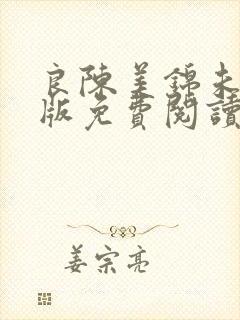 良陳美錦未
版免費閱讀
姜宗亮